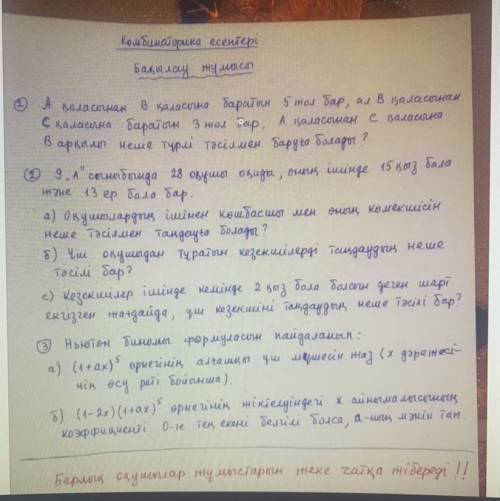 Комбинаторика есептері
Бақылау жұмысы
① А қаласынан В қаласына баратын 5 жол бар, ал В қаласынан
С қаласына баратын 3 жол бар, А қаласынан С қаласына
В арқылы неше түрлі тәсілмен баруға болады?
② 9 „А" сыныбында 28 оқушы оқиды, оның ішінде 15 қыз бала
және 13 ер бала бар.
а) Оқушылардың ішінен көшбасшы мен оның көмекшісін
неше тәсілмен таңдауға болады?
б) Үш оқушыдан тұратын кезекшілерді таңдаудың неше
тәсілі бар?
с) Кезекшілер ішінде кемінде 2 қыз бала болсын деген шарт
енгізген жағдайда, үш кезекшіні таңдаудың неше тәсілі бар?
③ Ньютон биномы формуласын пайдаланып:
а) (1+ax)⁵ өрнегінің алғашқы үш мүшесін жаз (х дәрежесі-
нің өсу реті бойынша).
б) (1-2x)(1+ax)⁵ өрнегінің жіктелуіндегі х айнымалысының
коэффициенті 0-ге тең екені белгілі болса, а-ның мәнін тап.
Барлық оқушылар жұмыстарын жеке чатқа жібереді !!